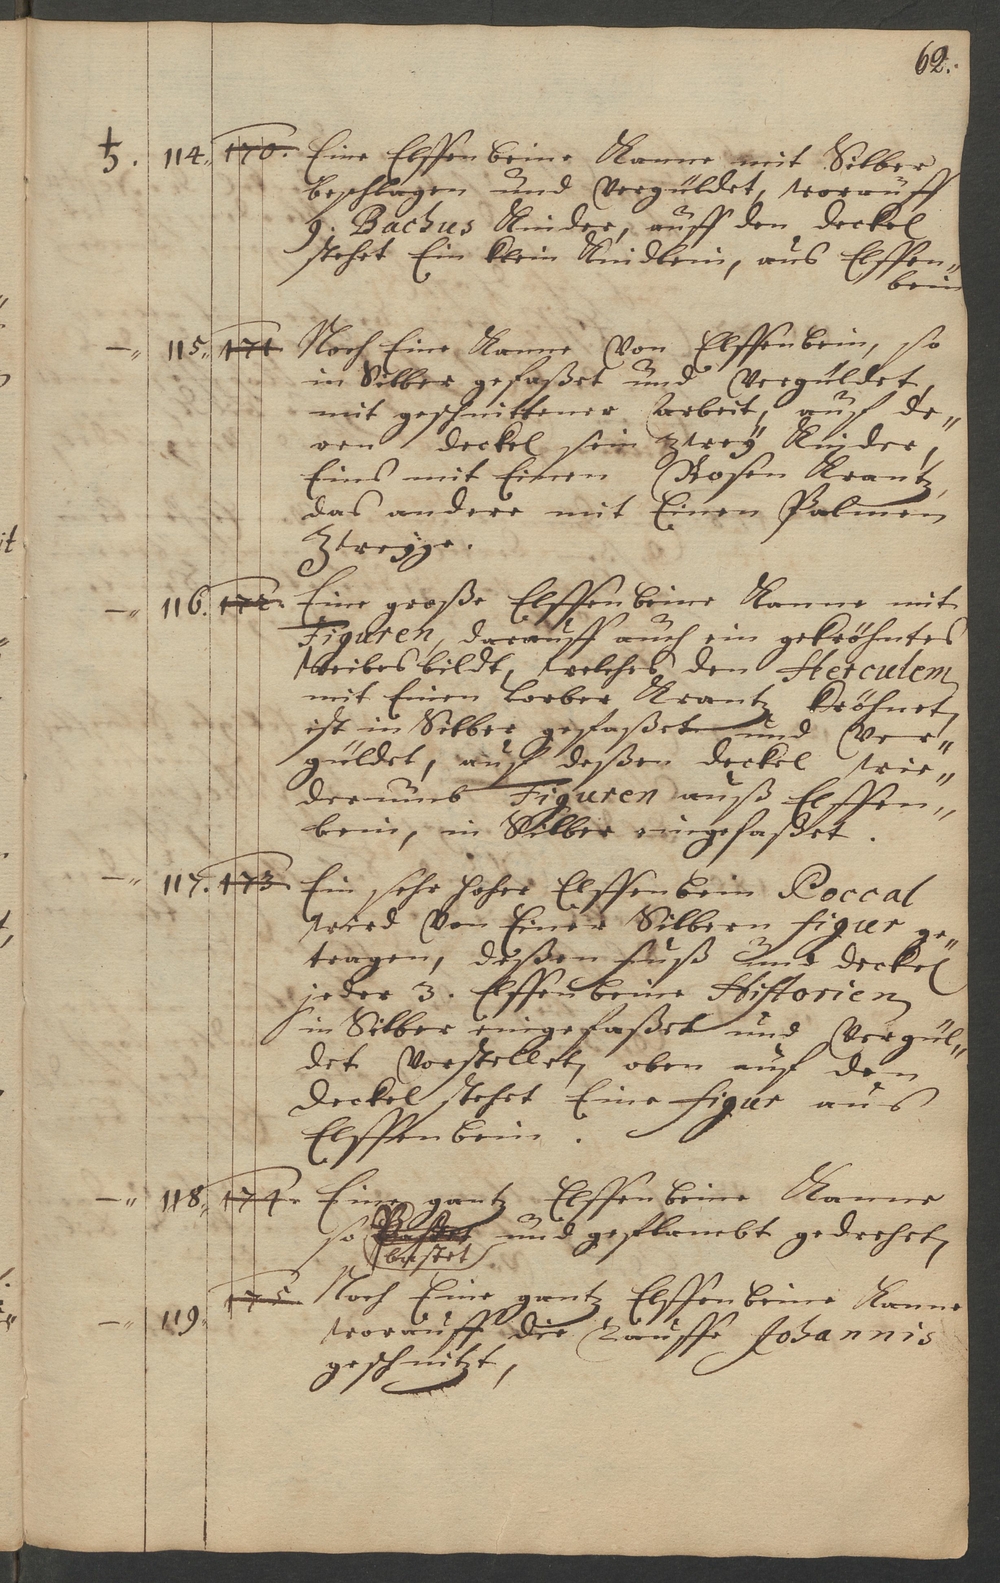 62.
5. 114. 170. Eine Elffenbeine Kanne mit Silber
beschlagen und vergüldet, worauff
9. Bachus Kinder, auff den deckel
stehet Ein klein Kindlein, aus Elffen„
bein
—„ 115. 171 Noch Eine Kanne von Elffenbein, so
in Silber gefaßet und vergüldet,
mit geschnittener arbeit, auf de„
ren deckel sein zweÿ Kinder,
Eins mit Einen Rosen Krantz,
das andere mit Einen Palmen
Zweÿge.
—„ 116. 172. Eine große Elffenbeine Kanne mit
Figuren, darauff auch ein gekröhntes
weibes bildt, welches den Herculem
mit Einen Lorber Krantz kröhnet,
ist in Silber gefaßet und ver„
güldet, auf deßen deckel wie„
derumb Figuren auß Elffen„
bein, in Silber eingefaßet.
—„ 117. 173. Ein sehr hoher Elffenbein Poccal
wird von Einer Silbern figur ge„
tragen, deßen fuß und deckel
jeder 3. Elffenbeine Historien
in Silber eingefaßet und vergül„
det vorstellet, oben auf den
deckel stehet Eine figur aus
Elffenbein.
—„ 118. 174. Eine gantz Elffenbeine Kanne
so und geflambt gedrehet,
—„ 119. 175. Noch Eine gantz Elffenbeine Kanne
worauff die Tauffe Johannis
geschnitzt,